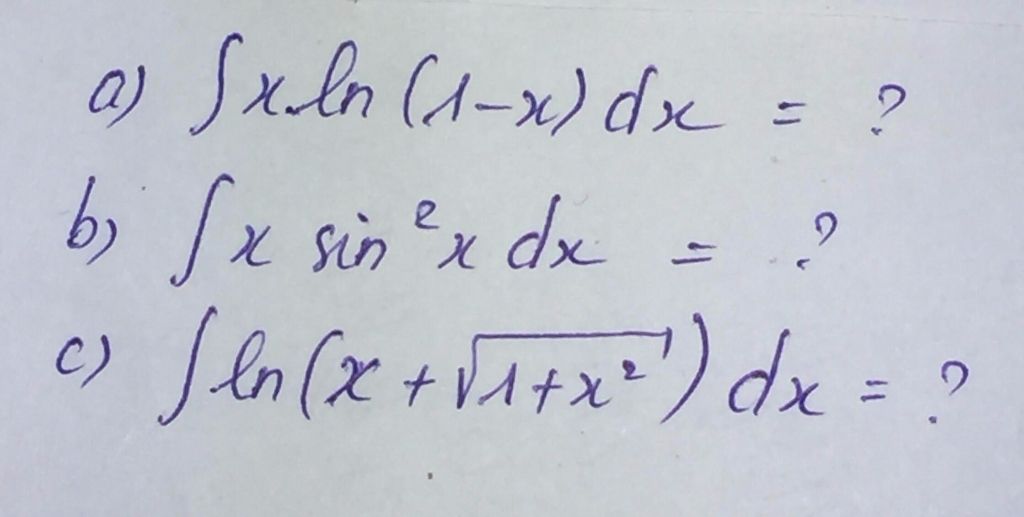 a) ∫x.ln(1-x)dx = ?
b) ∫x sin²x dx = ?
c) ∫ln(x+√(1+x²))dx = ?